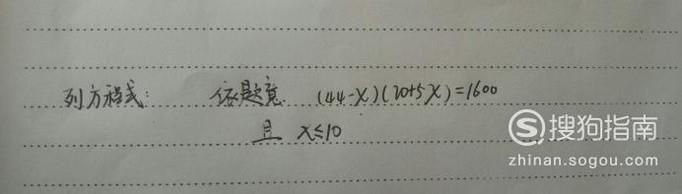 列方程式: 依题意 (44-x)(20+5x)=1600
且 x≤10
搜狗指南
zhinan.sogou.com